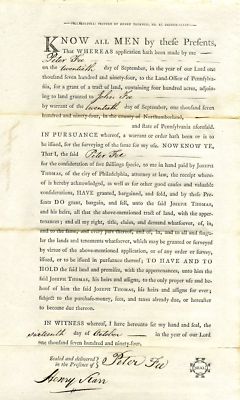 KNOW ALL MEN by these Presents,
That WHEREAS application hath been made by me
Peter Fee
on the twentieth day of September, in the year of our Lord one
thousand seven hundred and ninety-four, to the Land-Office of Pennsylva-
nia, for a grant of a tract of land, containing four hundred acres, adjoin-
ing to land granted to John Fee
by warrant of the twentieth day of September, one thousand seven
hundred and ninety-four, in the county of Northumberland,
and State of Pennsylvania aforesaid.
IN PURSUANCE whereof, a warrant or order hath been or is to
be issued, for the surveying of the same for my use. NOW KNOW YE,
That I, the said Peter Fee
for the consideration of five shillings specie, to me in hand paid by JOSEPH
THOMAS, of the city of Philadelphia, attorney at law, the receipt where-
of is hereby acknowledged, as well as for other good causes and valuable
considerations, HAVE granted, bargained, and sold, and by these Pre-
sents DO grant, bargain, and sell, unto the said JOSEPH THOMAS, and
his heirs, all that the above-mentioned tract of land, with the apper-
tenances; and all my right, title, claim, and demand whatsoever, of, in,
and to the same, and every part thereof, and of, in, and to all and singu-
lar the lands and tenements whatsoever, which may be granted or surveyed
by virtue of the above-mentioned application, or of any order or survey,
issued, or to be issued in pursuance thereof; TO HAVE AND TO
HOLD the said land and premises, with the appertenances, unto him the
said JOSEPH THOMAS, his heirs and assigns, to the only proper use and be-
hoof of him the said JOSEPH THOMAS, his heirs and assigns for ever;
subject to the purchase-money, fees, and taxes already due, or hereafter
to become due thereon.
IN WITNESS whereof, I have hereunto set my hand and seal, the
day of October in the year of our Lord
one thousand seven hundred and ninety-four.
Sealed and delivered
in the Presence of
Peter Fee
Henry Karr